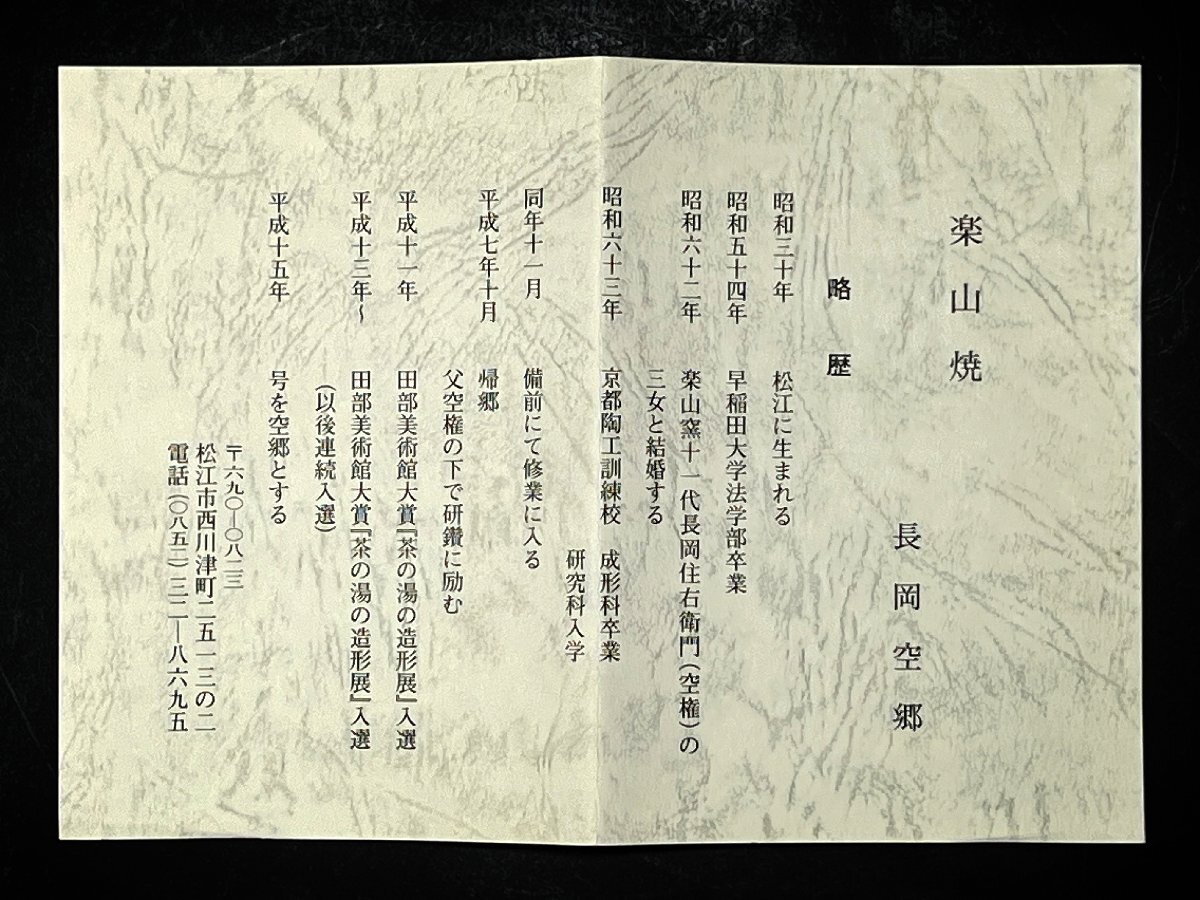 楽山焼
長岡空郷
略歴
昭和三十年 松江に生まれる
昭和五十四年 早稲田大学法学部卒業
昭和六十二年 楽山窯十一代長岡住右衛門(空権)の
三女と結婚する
昭和六十三年 京都陶工訓練校 成形科卒業
研究科入学
同年十一月 備前にて修業に入る
平成七年十月 帰郷
父空権の下で研鑽に励む
平成十一年 田部美術館大賞『茶の湯の造形展』入選
平成十三年~ 田部美術館大賞『茶の湯の造形展』入選
(以後連続入選)
平成十五年 号を空郷とする
〒六九〇―〇八二三
松江市西川津町二五一三の二
電話(〇八五二)二二―八六九五